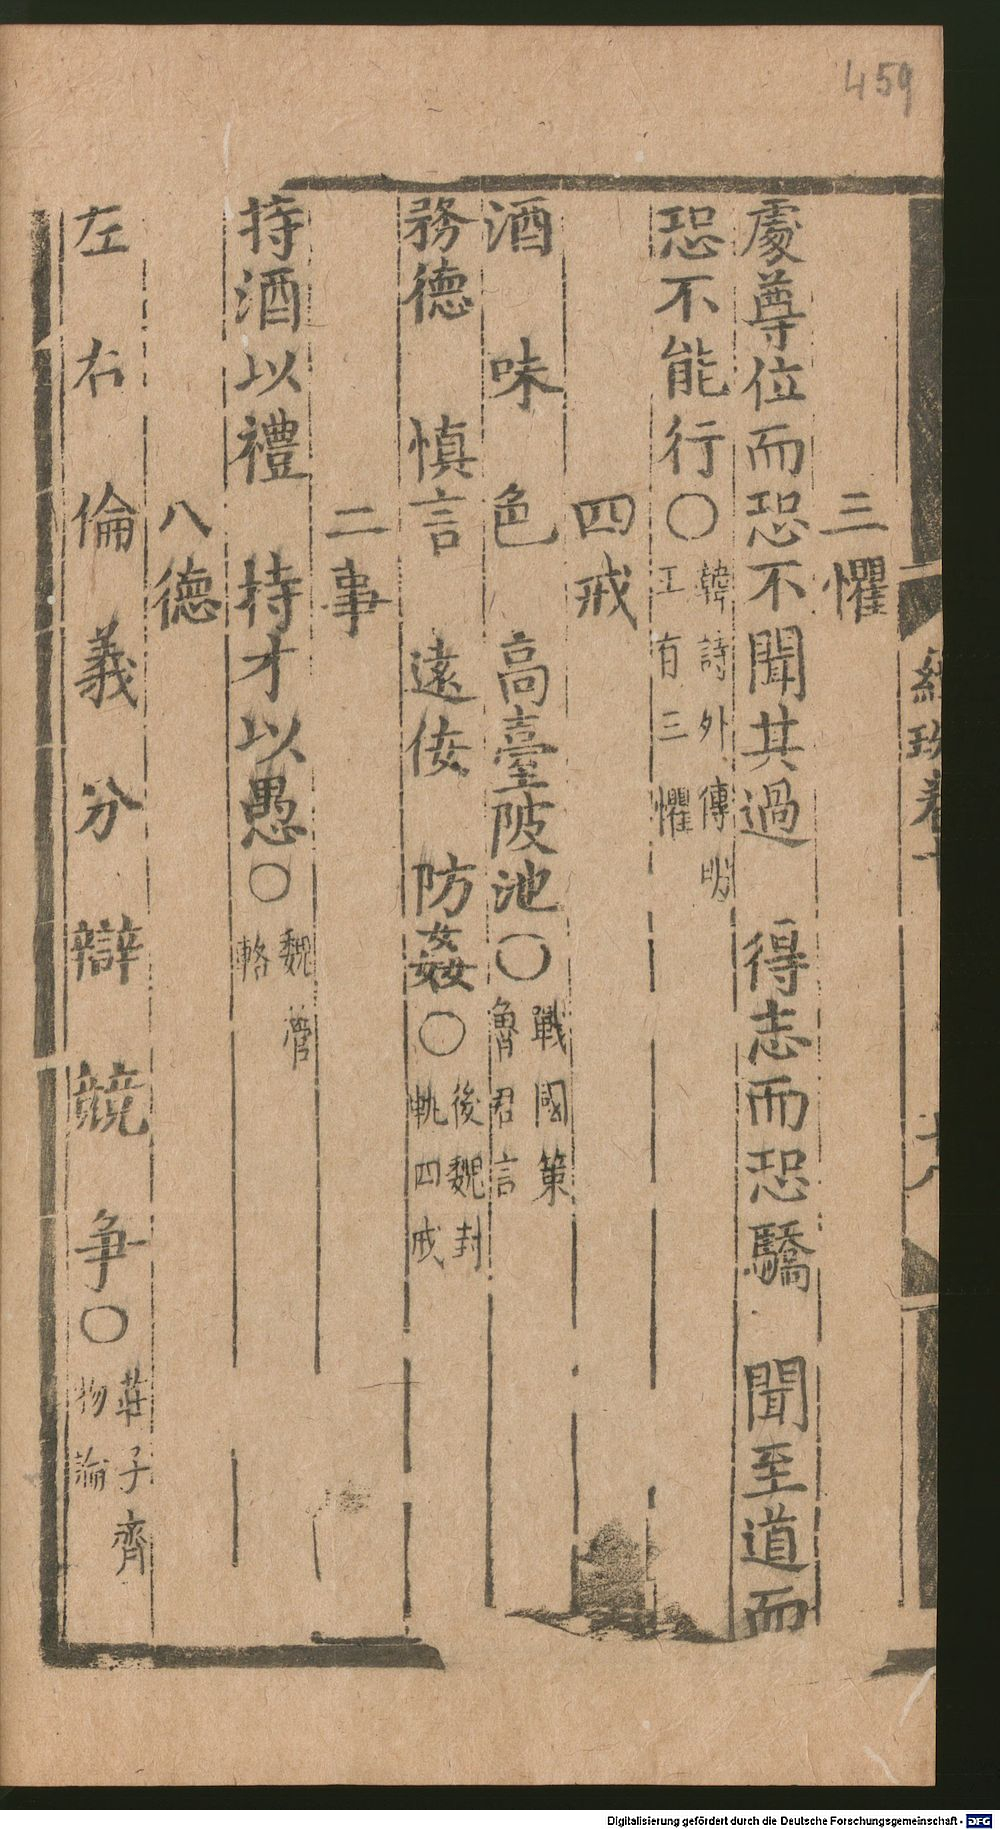 459
三懼
處尊位而恐不聞其過　得志而恐驕　聞至道而
恐不能行〇韓詩外傳明王有三懼
四戒
酒　味　色　高臺陂池〇戰國策魯君言
務德　慎言　遠佞　防姦〇後魏封軌四戒
二事
持酒以禮　持才以愚〇魏管輅
八德
左　右　倫　義　分　辯　競　爭〇莊子齊物論
Digitalisierung gefördert durch die Deutsche Forschungsgemeinschaft - DFG